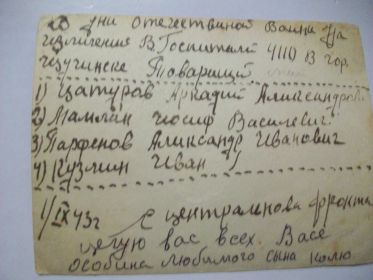 В дни отечествиной Войны На
излечения В Госпитали 4110 В гор.
Изучинске Товарищй
1) Цатуров Аркадий Александров
2) Маилян Иосиф Василевич
3) Парфенов Александр Иванович
4) Кузмин Иван
1/IX 43г с централнова фронта
целую вас всех. Васе
особина любимого сына колю